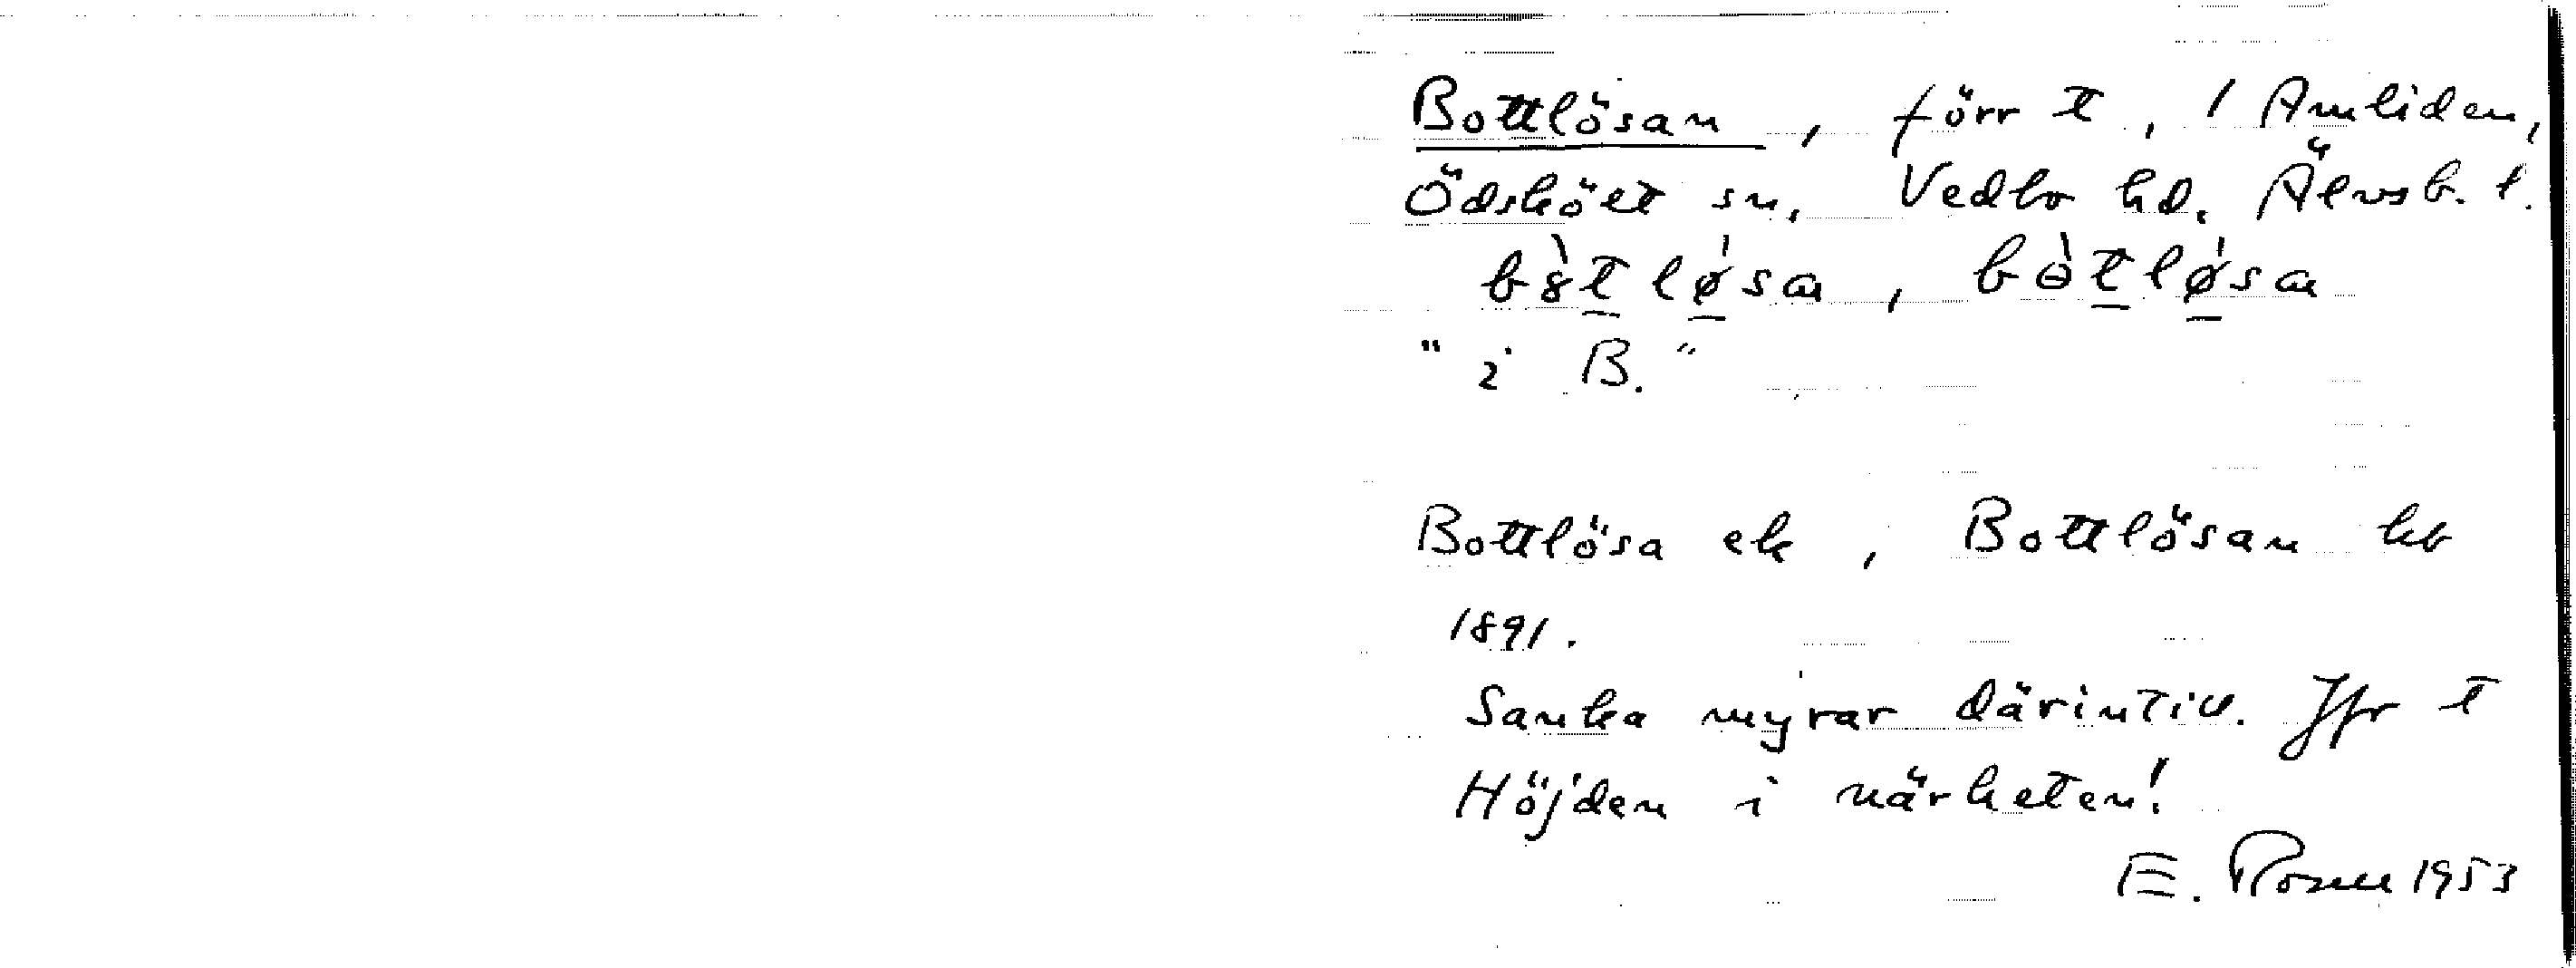 Bottlösan, förr t, 1 Amliden,
Ödsköet sn, Vedbo hd. Älvsb. l.
b8̀tlǿsa, bɵ̀tlǿsa
"i B."
Bottlösa ek, Bottlösan hb
1891.
Sanka myrar därintill. Jfr t
Höjden i närheten!
E. Rosell 1953